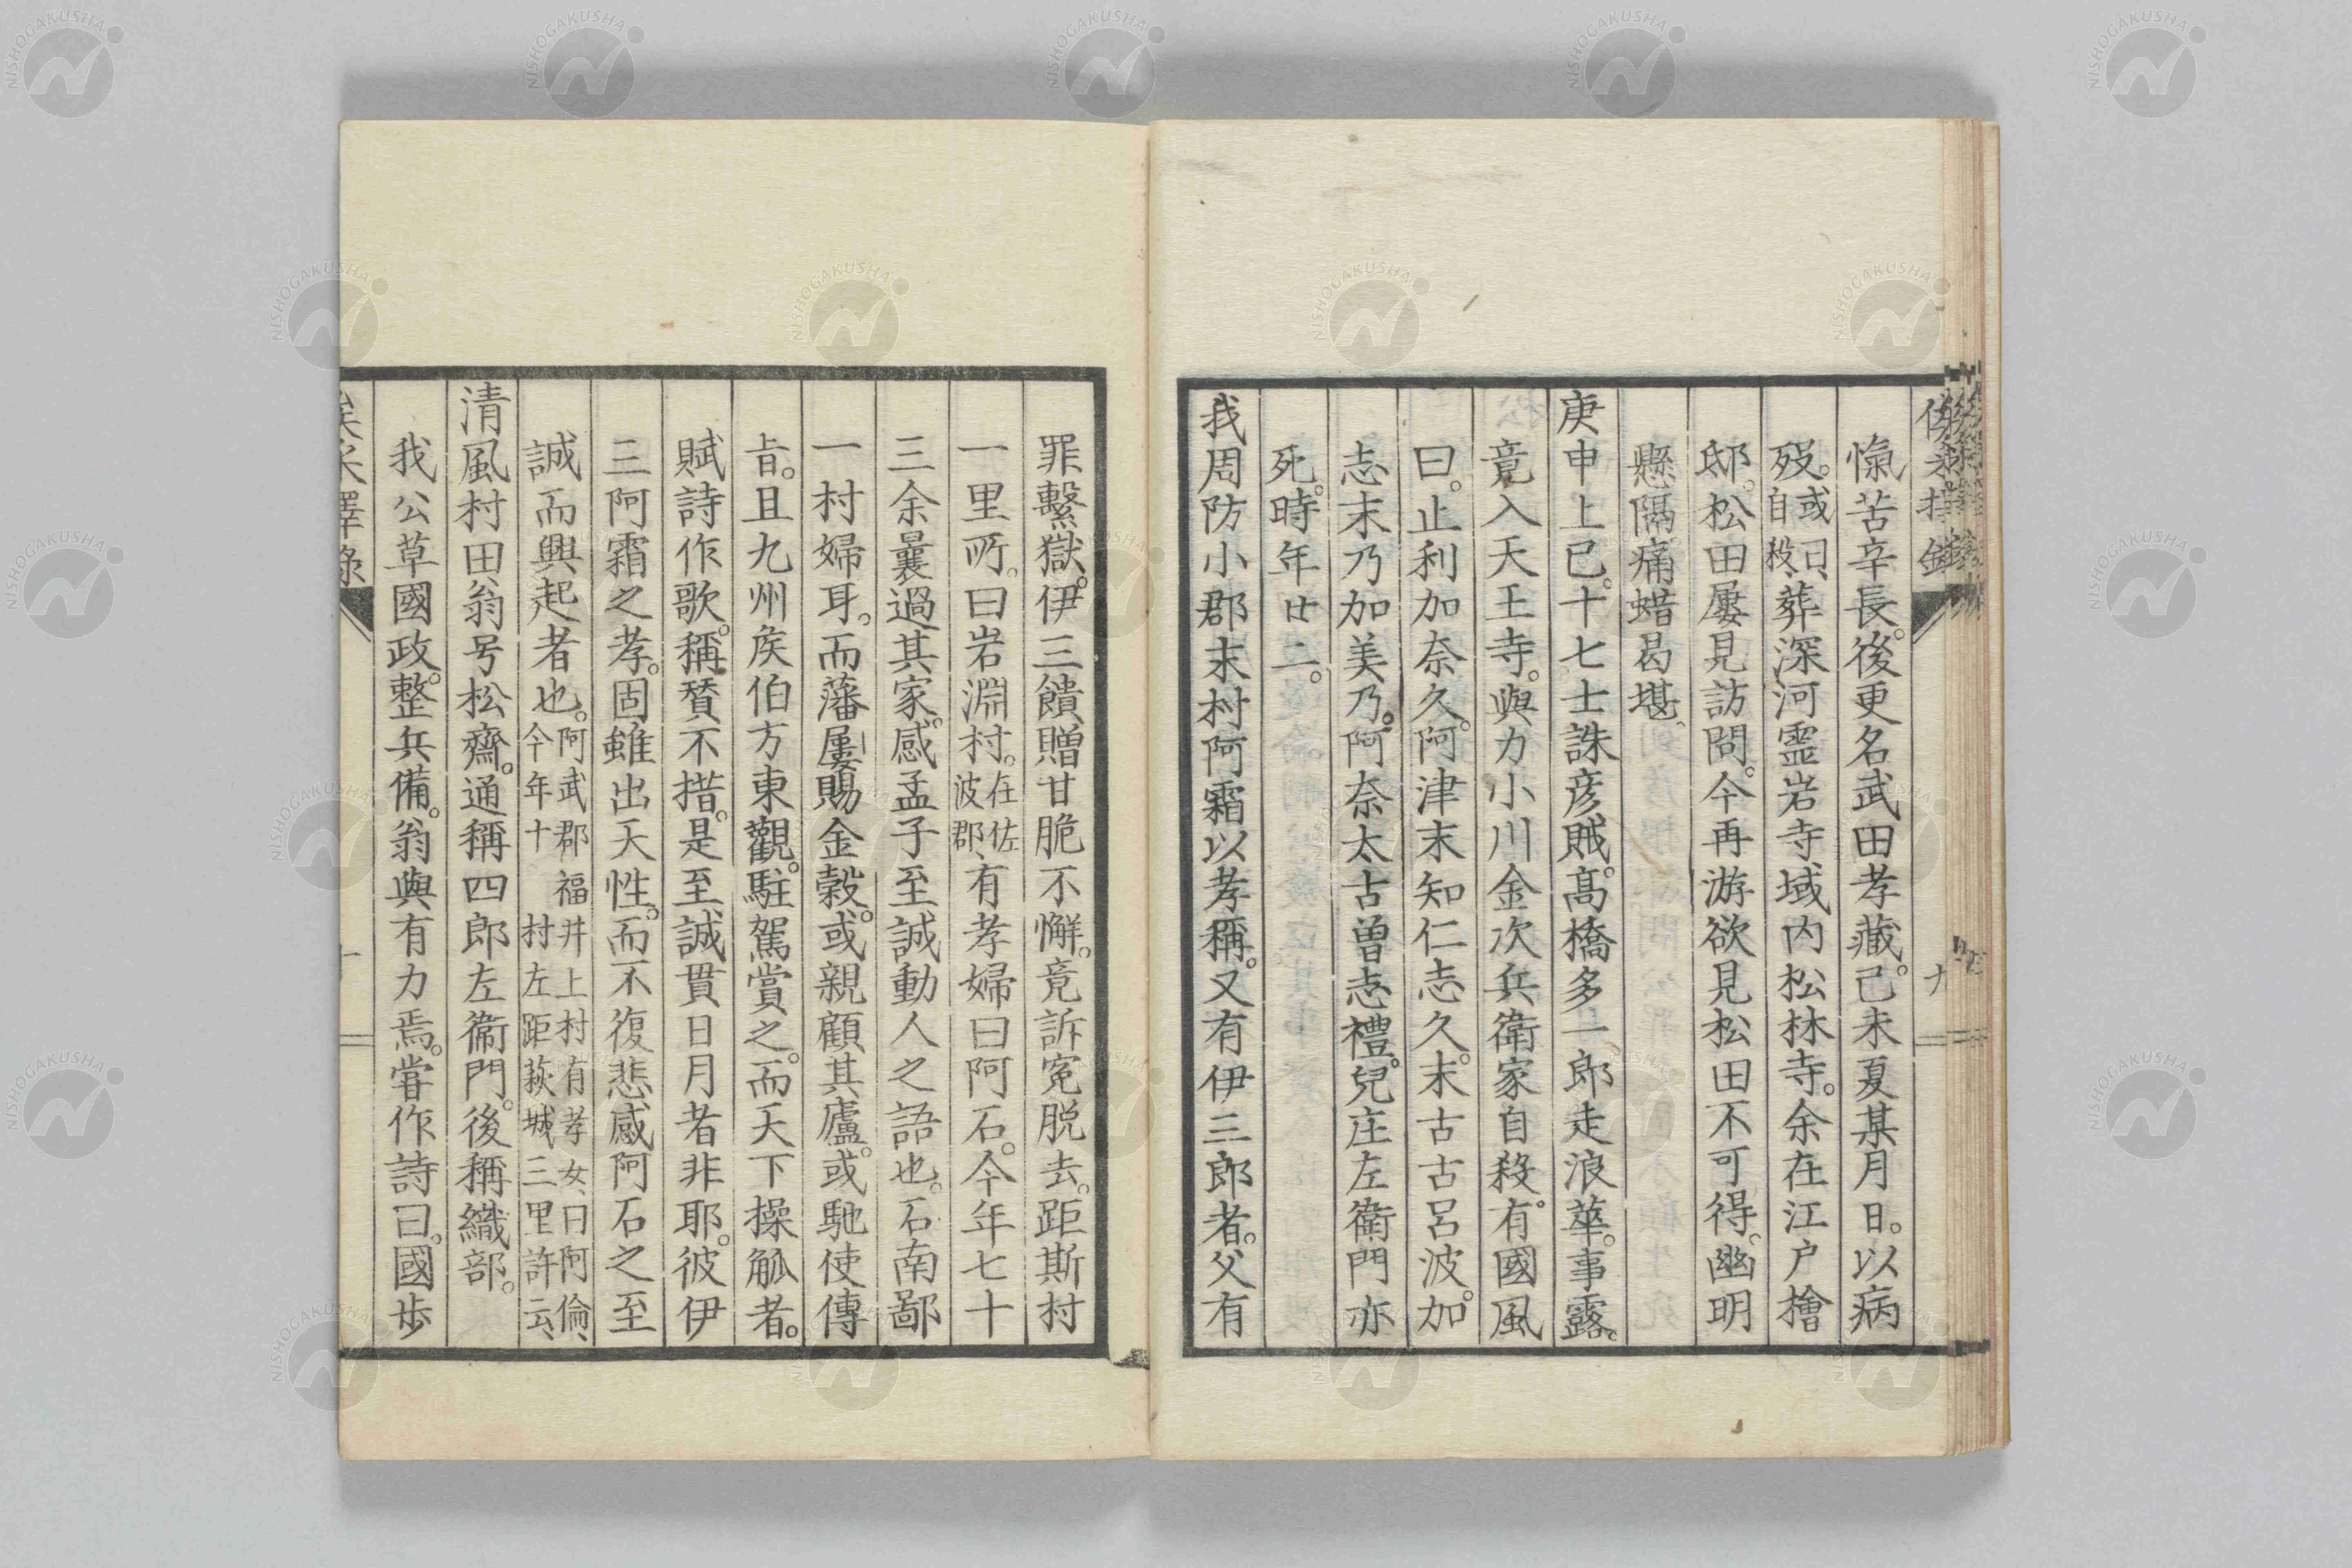 惱苦辛長。後更名武田孝藏。己未夏某月日。以病
歿。或曰、自殺、葬深河霊岩寺域内松林寺。余在江戸檜
邸。松田屢見訪問。今再游欲見松田不可得。幽明
懸隔痛蜡曷堪。
庚申上巳。十七士誅彦賊。髙橋多一郎走浪華。事露。
竟入天王寺。與力小川金次兵衛家自殺。有國風
曰。止利加奈久。阿津末知仁志久。末古古呂波加。
志末乃加美乃。阿奈太古曽志禮。兒庄左衛門亦
死。時年廿二。
我周防小郡末村阿霜以孝稱。又有伊三郎者。父有
九
罪繫獄。伊三饋贈甘脆不懈。竟訴寃脱去。距斯村
一里所。曰岩淵村。在佐波郡、有孝婦曰阿石。今年七十
三余曩過其家。感孟子至誠動人之語也。石南鄙
一村婦耳。而藩屢賜金穀。或親顧其廬。或馳使傳
旨。且九州矦伯方東觀。駐駕賞之。而天下操觚者。
賦詩作歌。稱賛不措。是至誠貫日月者非耶。彼伊
三阿霜之孝。固雖出天性。而不復悲感阿石之至
誠而興起者也。阿武郡福井上村有孝女、曰阿倫、今年十 村左距萩城三里許云、
清風村田翁号松齋。通稱四郎左衛門。後稱織部。
我公草國政。整兵備。翁與有力焉。甞作詩曰。國歩
十
NISHOGAKUSHA